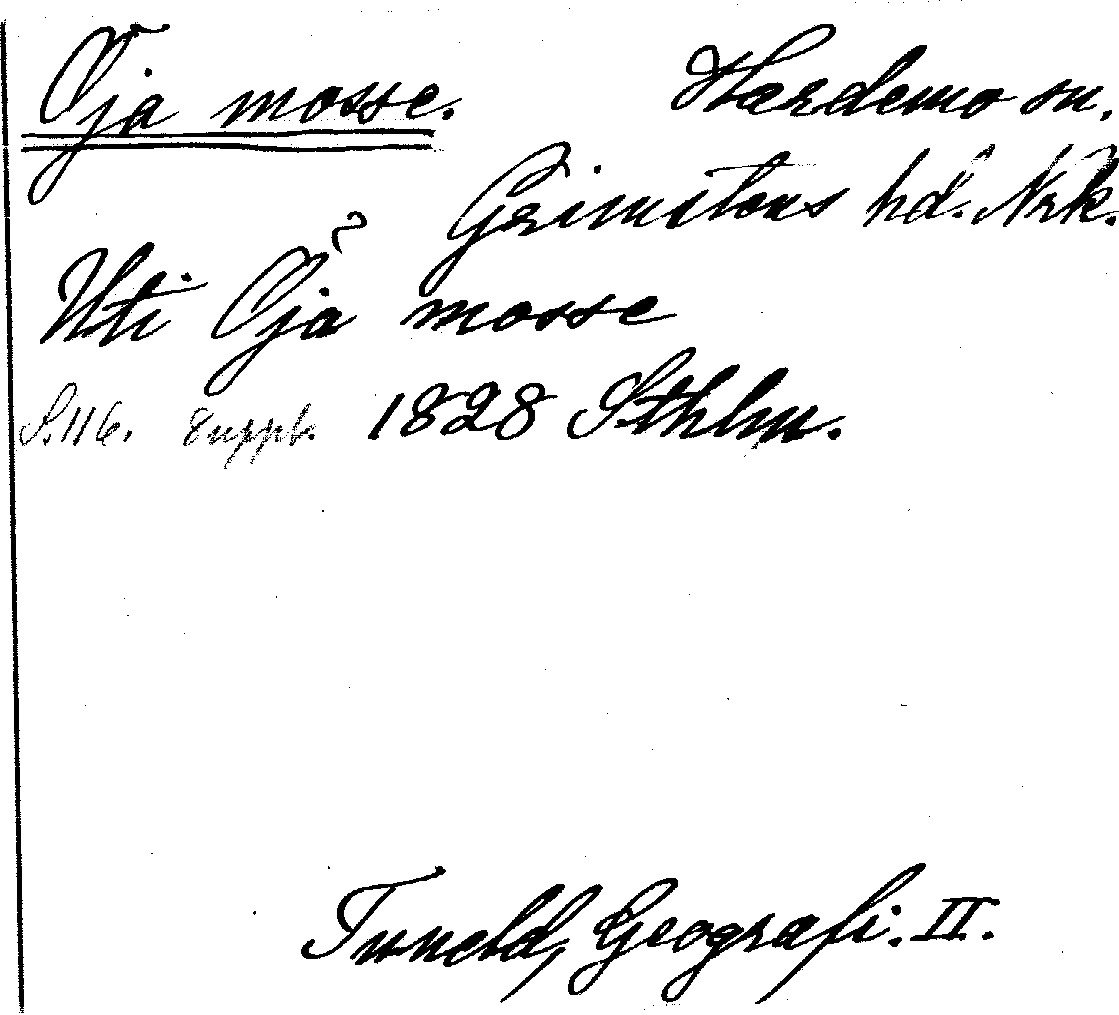 Öja mosse. Hardemo sn.
Grimstens hd. Nrk.
Uti Öja mosse
S. 116. Suppl. 1828 Sthlm.
Tuneld, Geografi. II.